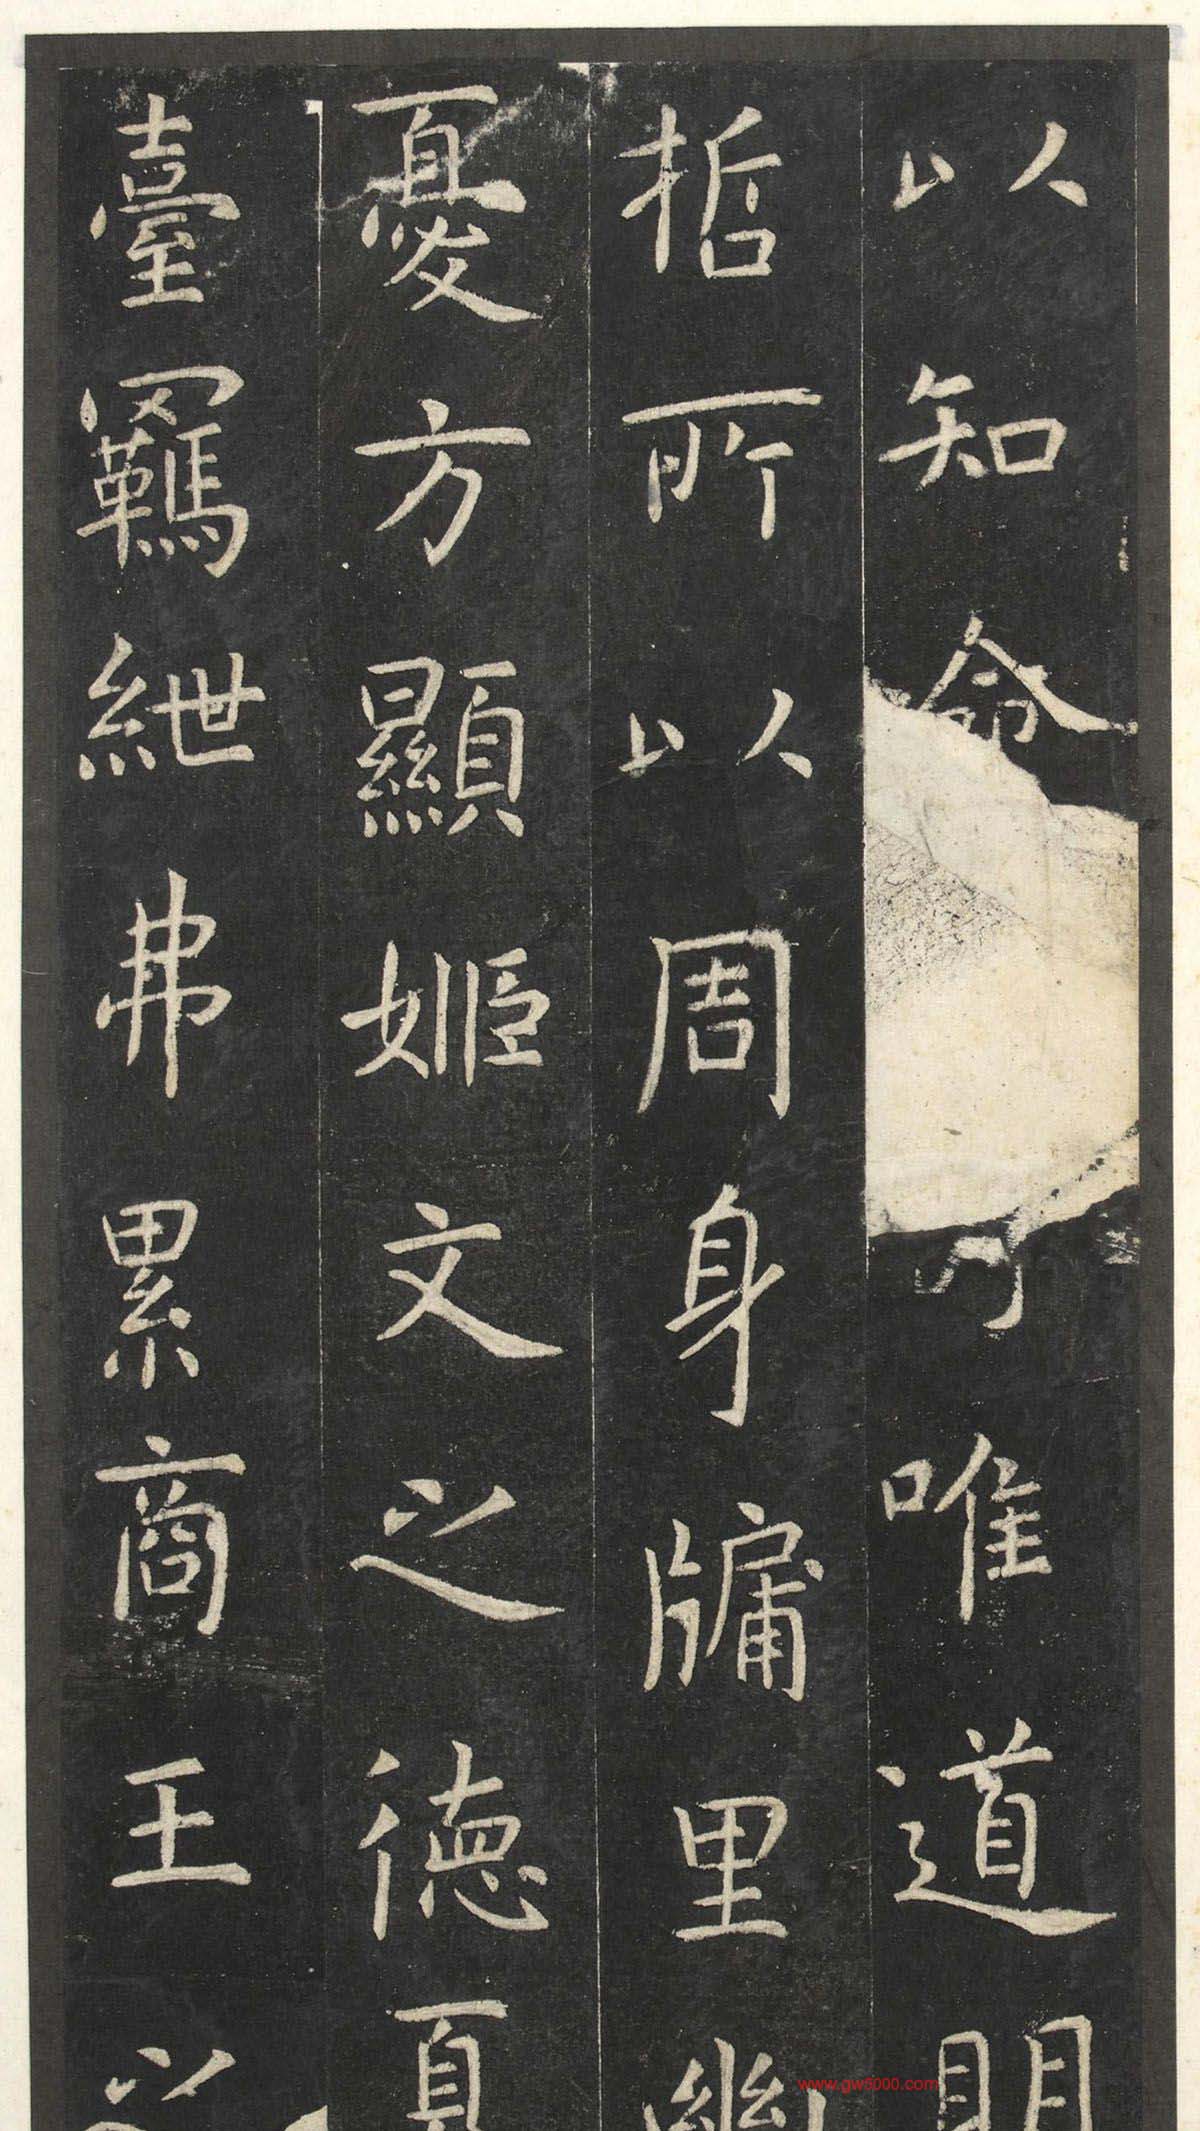 以知命可唯道明
哲所以周身牖里幽
憂方顯姬文之德夏
臺羈紲弗累商王之
www.gw5000.com